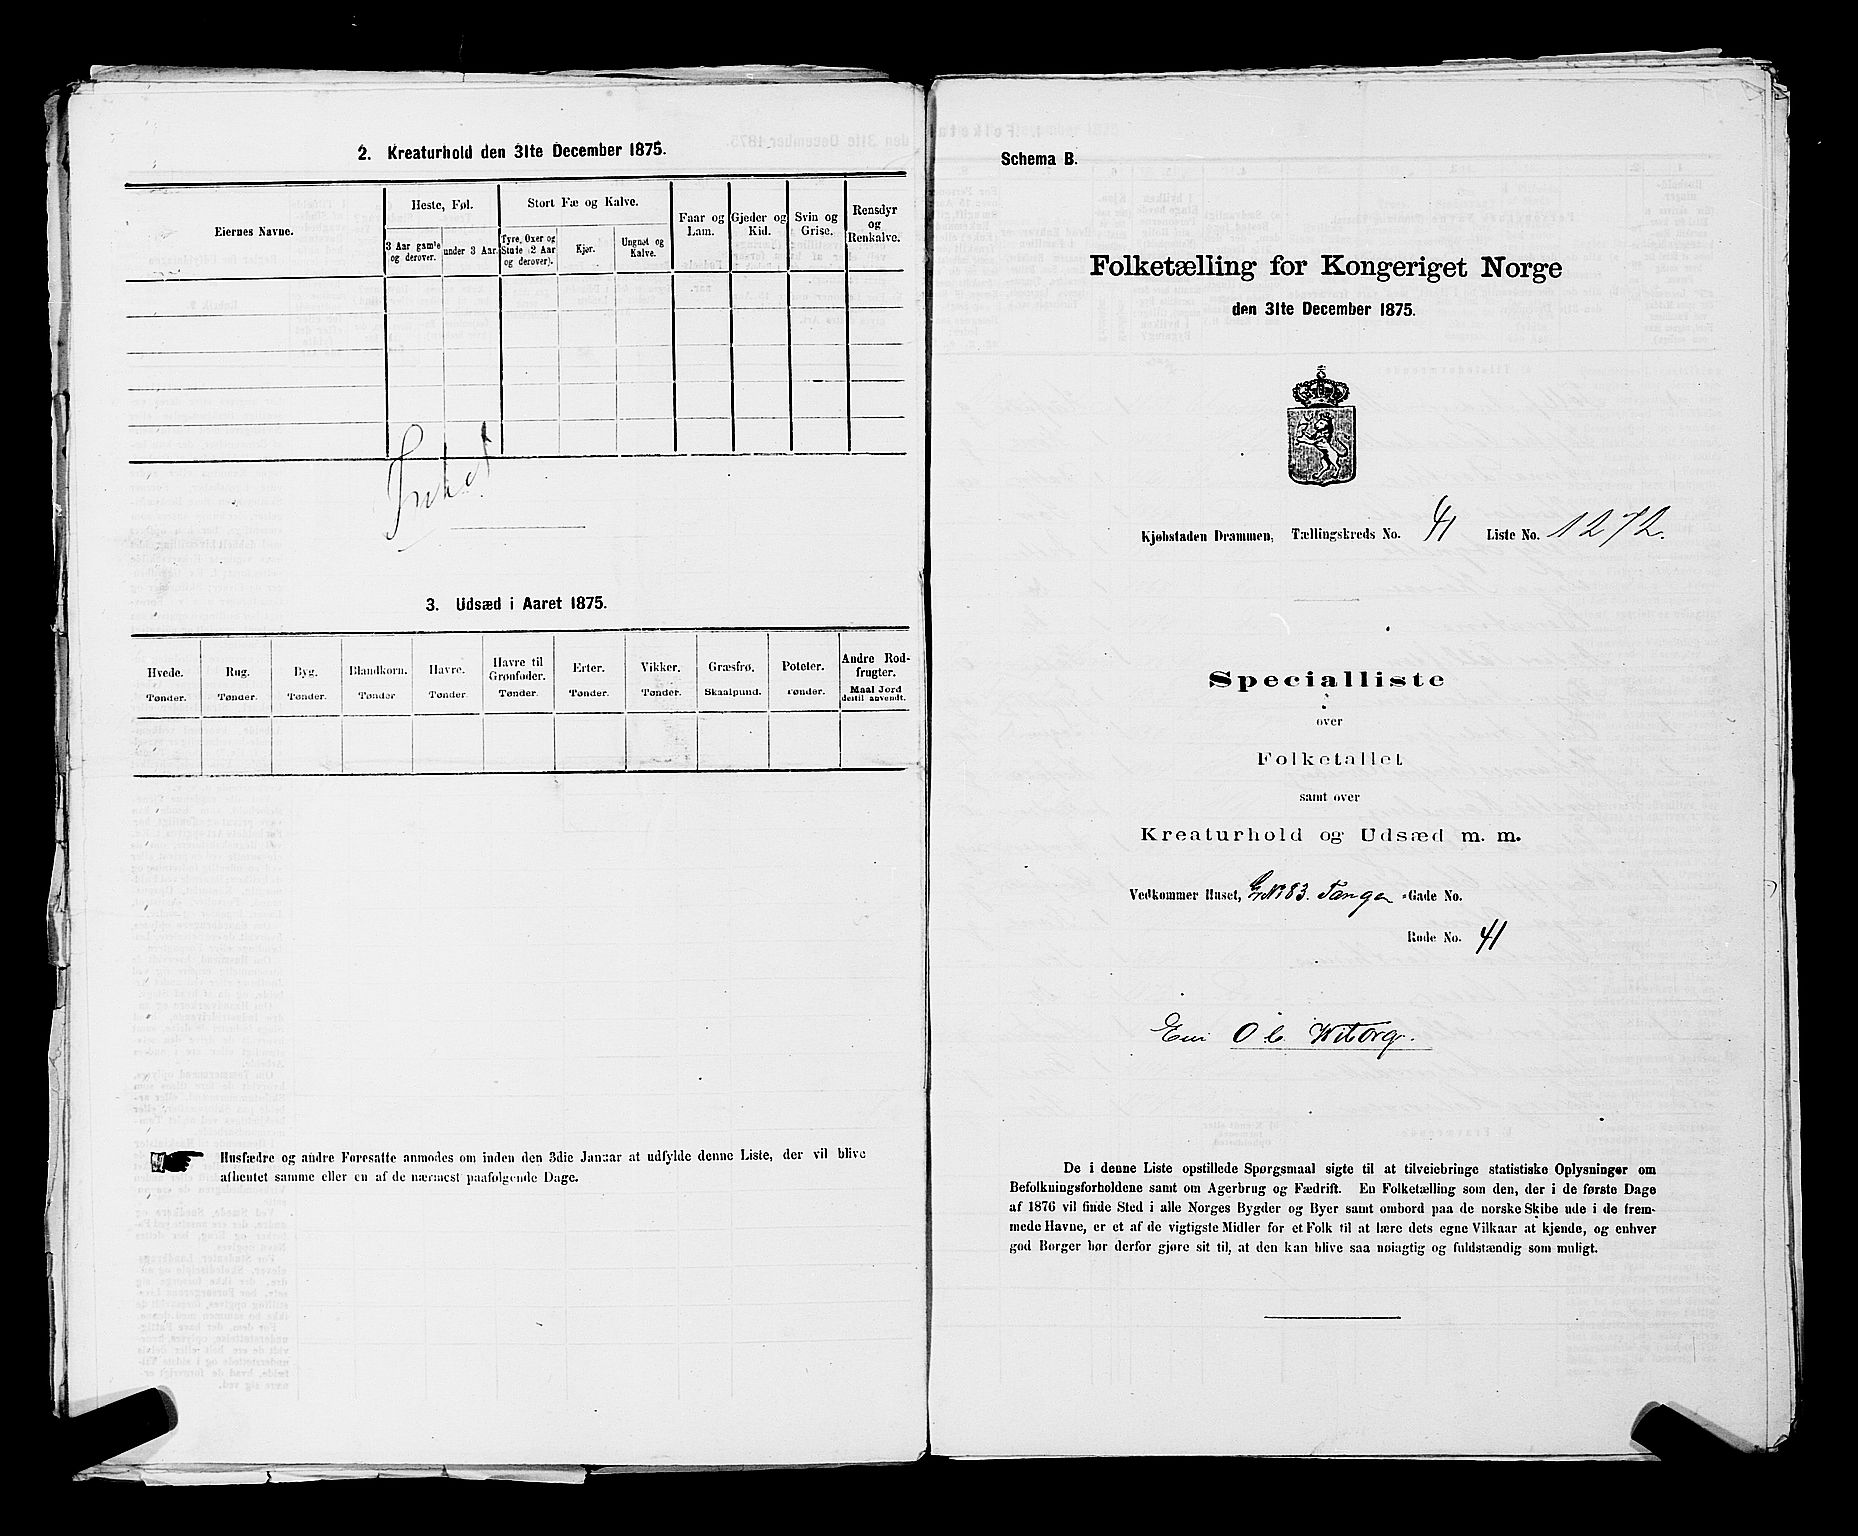 2. Kreaturhold den 31te December 1875.
Eiernes Navne.
Heste, Føl.
3 Aar gamle og derover.
under 3 Aar.
Stort Fæ og Kalve.
Tyre, Oxer og Stude (2 Aar og derover).
Kjør.
Ungnøt og Kalve.
Faar og Lam.
Gjeder og Kid.
Svin og Grise.
Rensdyr og Renkalve.
3. Udsæd i Aaret 1875.
Hvede. Tønder.
Rug. Tønder.
Byg. Tønder.
Blandkorn. Tønder
Havre. Tønder.
Havre til Grønføder. Tønder.
Erter. Tønder.
Vikker. Tønder.
Græsfrø. Skaalpund.
Poteter. Tønder.
Andre Rodfrugter. Maal Jord dertil anvendt.
Husfædre og andre Foresatte anmodes om inden den 3die Januar at udfylde denne Liste, der vil blive
afhentet samme eller en af de nærmest paafølgende Dage.
Schema B.
Folketælling for Kongeriget Norge
den 31te December 1875.
Kjøbstaden Drammen, Tællingskreds No. 41 Liste No. 1272.
Specialliste
over
Folketallet
samt over
Kreaturhold og Udsæd m. m.
Vedkommer Huset, GrNo 83. Tangen -Gade No.
Rode No. 41
De i denne Liste opstillede Spørgsmaal sigte til at tilveiebringe statistiske Oplysninger om
Befolkningsforholdene samt om Agerbrug og Fædrift. En Folketælling som den, der i de første Dage
af 1876 vil finde Sted i alle Norges Bygder og Byer samt ombord paa de norske Skibe ude i de frem-
mede Havne, er et af de vigtigste Midler for et Folk til at lære dets egne Vilkaar at kjende, og enhver
god Borger bør derfor gjøre sit til, at den kan blive saa nøiagtig og fuldstændig som muligt.